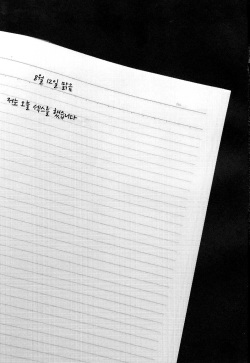 8월 12일 맑음
저는 오늘 섹스를 했습니다